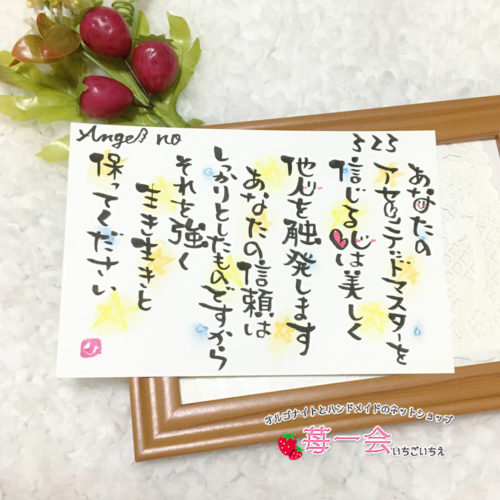 Angel no
323
あなたの
アセンテッドマスターを
信じる心は美しく
他人を触発します
あなたの信頼は
しっかりとしたものですから
それを強く
生き生きと
保ってください
オルゴナイトとハンドメイドのネットショップ
苺一会いちごいちえ